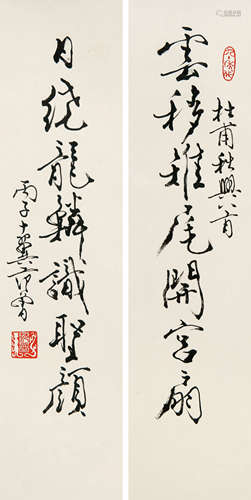 杜甫秋興八首
雲移雉尾開宮扇
日繞龍鱗識聖顏
丙子十翼范曾